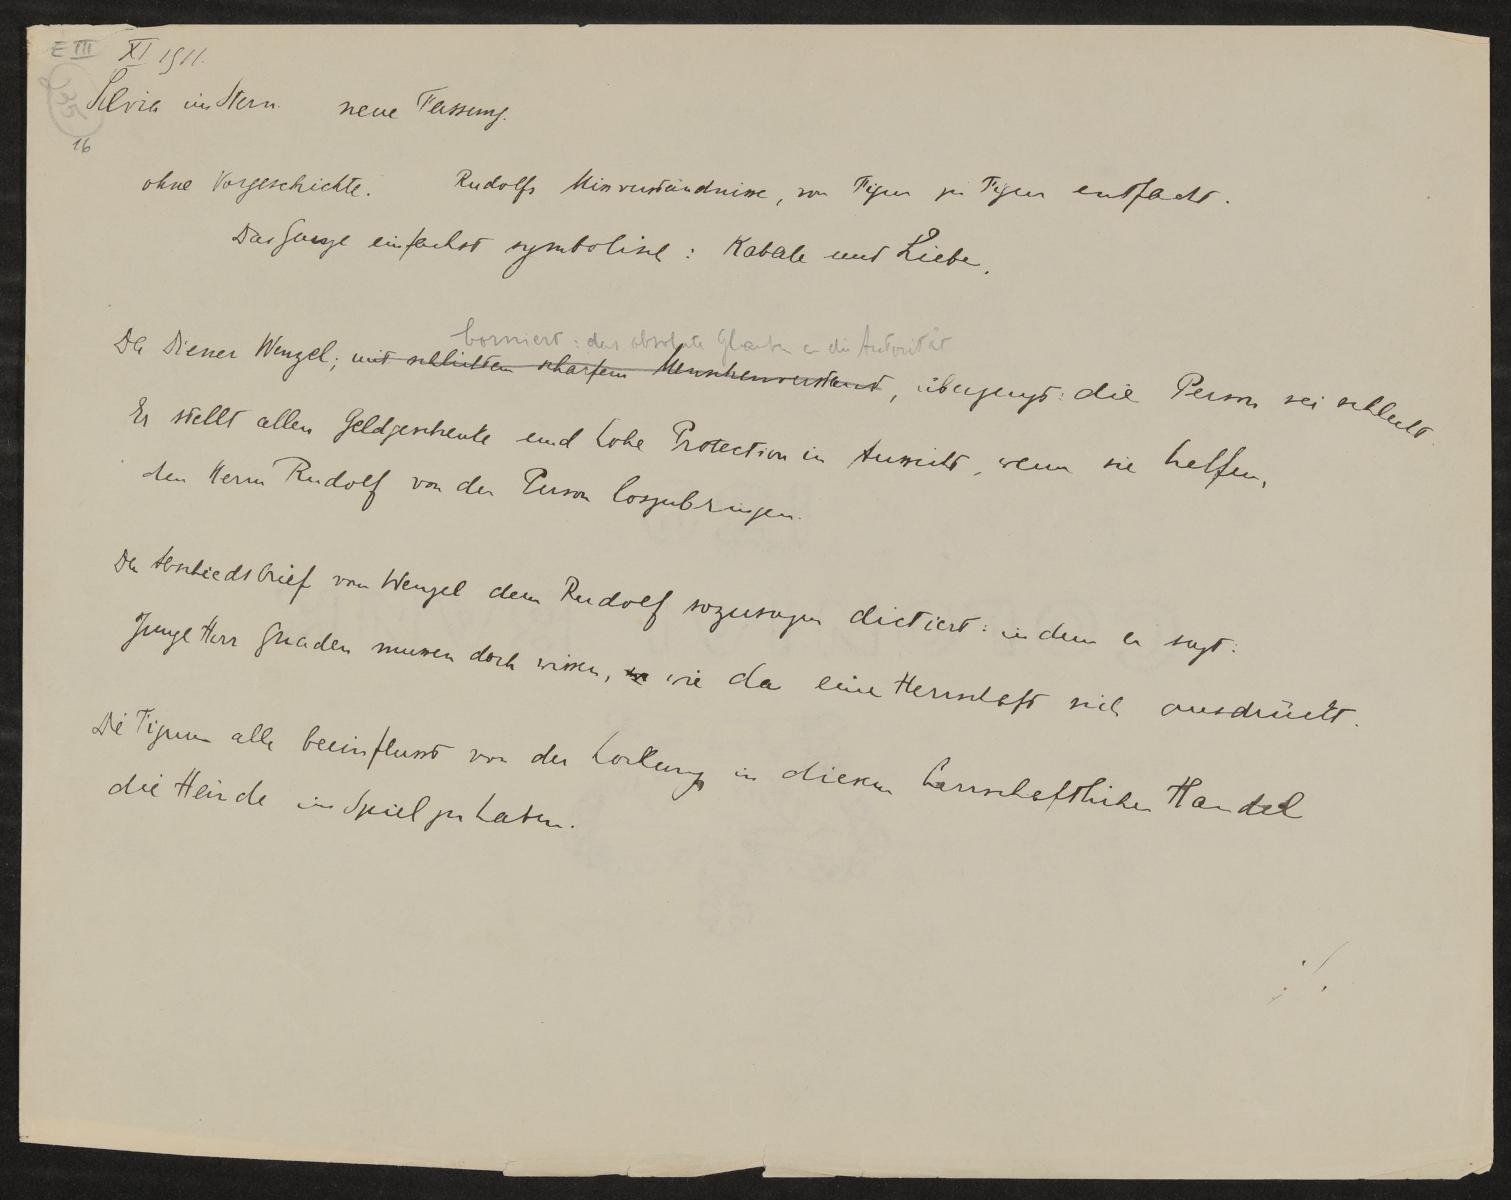 E III XI 1911.
35
16
Silvia im Stern. neue Fassung.
ohne Vorgeschichte. Rudolfs Misverständnisse, von Figur zu Figur entfacht.
Das Ganze einfachst symbolisch: Kabale und Liebe.
borniert: das absolute Glauben an die Autorität
Der Diener Wenzel; mit schlichtem scharfem Menschenverstand, überzeugt: die Person sei schlecht.
Er stellt allen Geldgeschenke und hohe Protection in Aussicht, wenn sie helfen,
den Herrn Rudolf von der Person loszubringen.
Der Abschiedsbrief von Wenzel dem Rudolf sozusagen dictiert: indem er sagt:
Junge Herr Gnaden mussen doch wissen, wie da eine Herrschaft sich ausdrückt.
Die Figuren alle beeinflusst von der Lockung in diesem herrschaftlichen Handel
die Hände im Spiel zu haben.